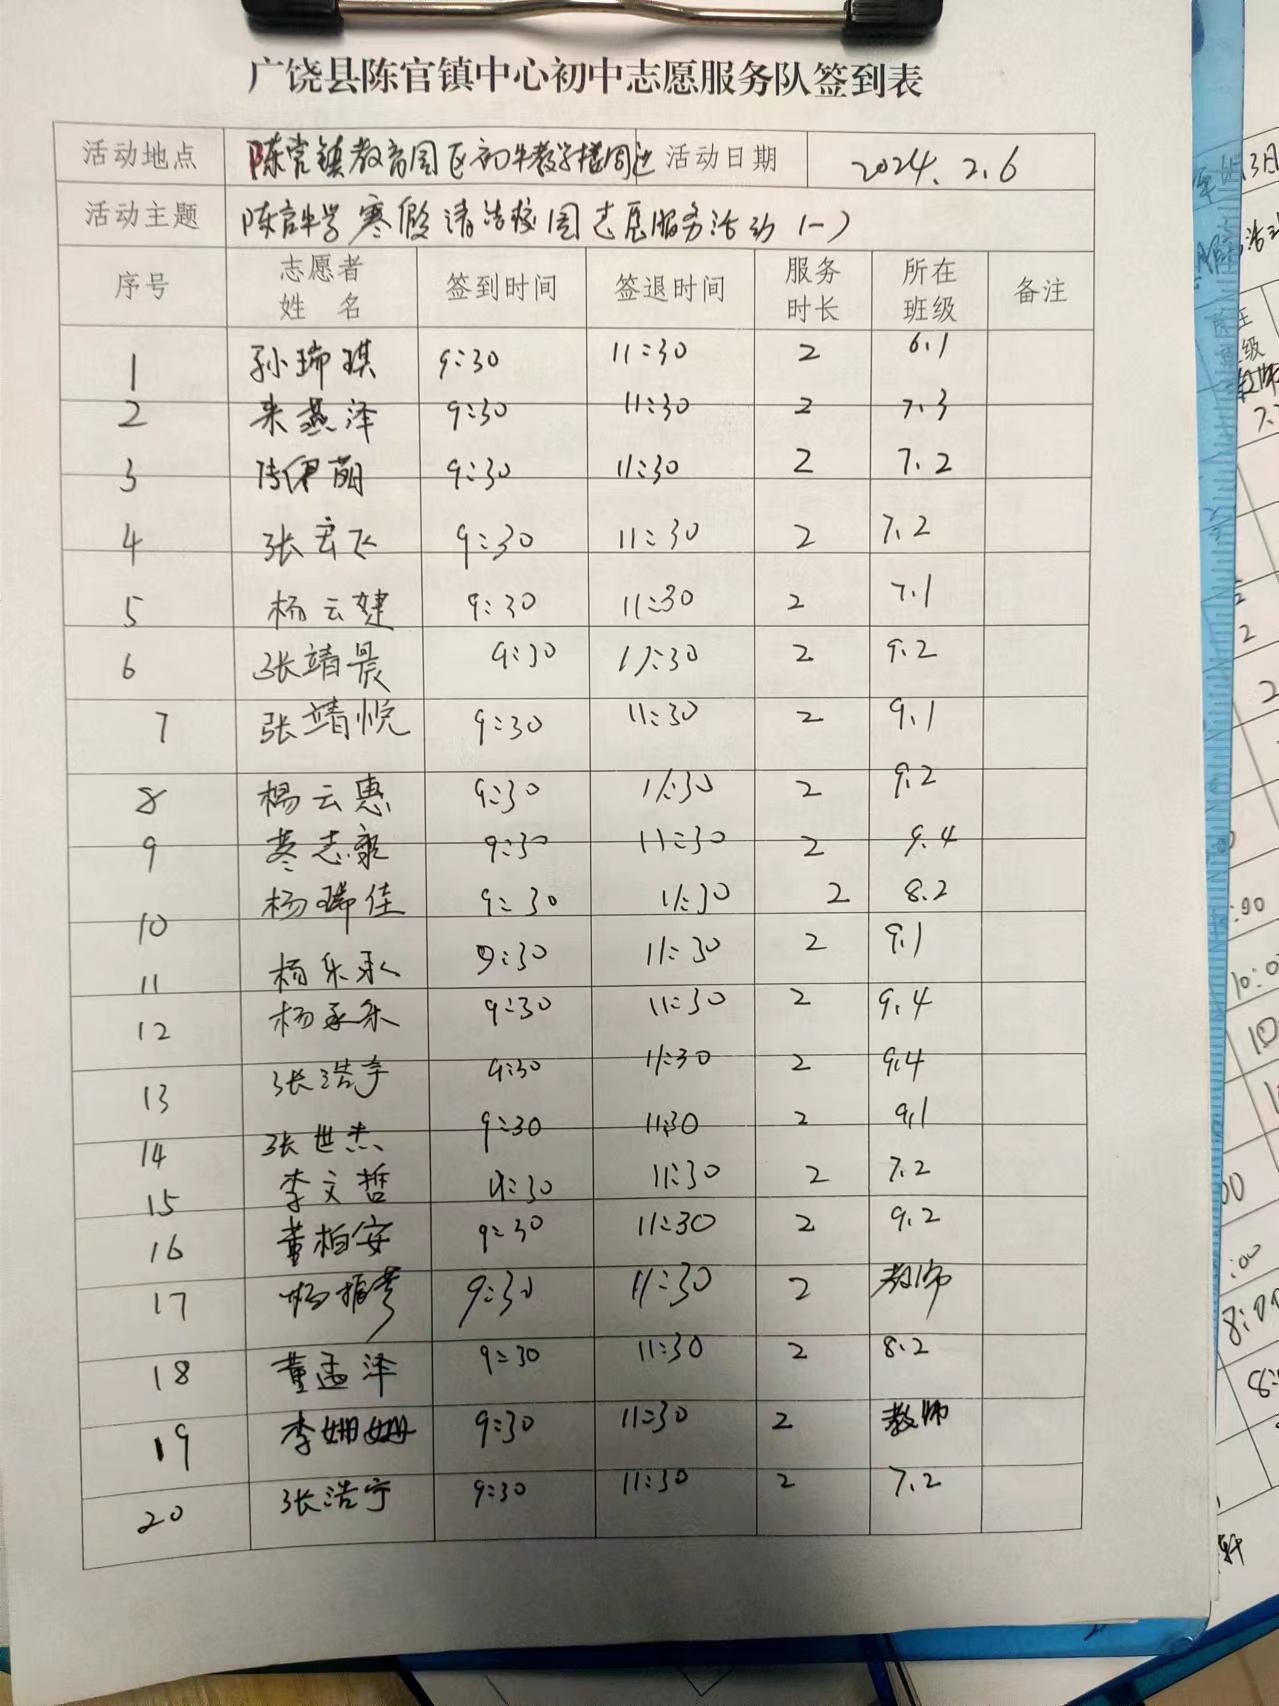 广饶县陈官镇中心初中志愿服务队签到表
活动地点 陈官镇教育园区初中教学楼周边 活动日期 2024.2.6
活动主题 陈官中学寒假清洁校园志愿服务活动(一)
序号 志愿者姓名 签到时间 签退时间 服务时长 所在班级 备注
1 孙瑞琪 9:30 11:30 2 6.1
2 来燕泽 9:30 11:30 2 7.3
3 9:30 11:30 2 7.2
4 张宏飞 9:30 11:30 2 7.2
5 杨云婕 9:30 11:30 2 7.1
6 张靖晨 9:30 11:30 2 9.2
7 张靖悦 9:30 11:30 2 9.1
8 杨云惠 9:30 11:30 2 9.2
9 志毅 9:30 11:30 2 9.4
10 杨瑞佳 9:30 11:30 2 8.2
11 杨乐承 9:30 11:30 2 9.1
12 杨承乐 9:30 11:30 2 9.4
13 张浩宇 9:30 11:30 2 9.4
14 张世杰 9:30 11:30 2 9.1
15 李文哲 9:30 11:30 2 7.2
16 黄柏安 9:30 11:30 2 9.2
17 杨振 9:30 11:30 2 教师
18 董孟泽 9:30 11:30 2 8.2
19 李姗姗 9:30 11:30 2 教师
20 张浩宁 9:30 11:30 2 7.2